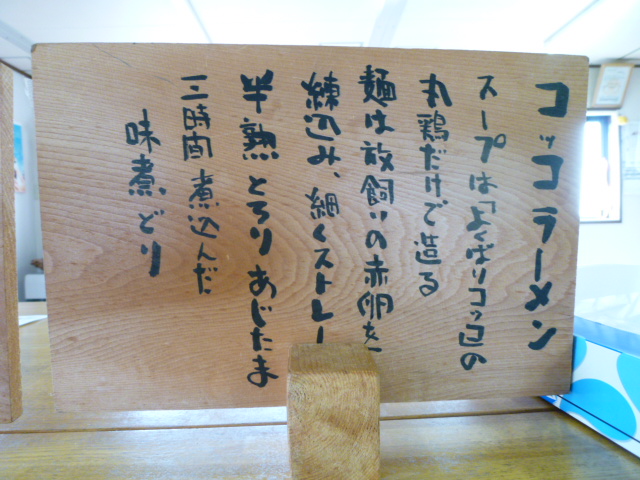 コッコラーメン
スープは「よくばりコッコの
丸鶏だけで造る
麺は放飼いの赤卵を
練込み、細くストレー
半熟とろりあじたま
三時間煮込んだ
味煮どり